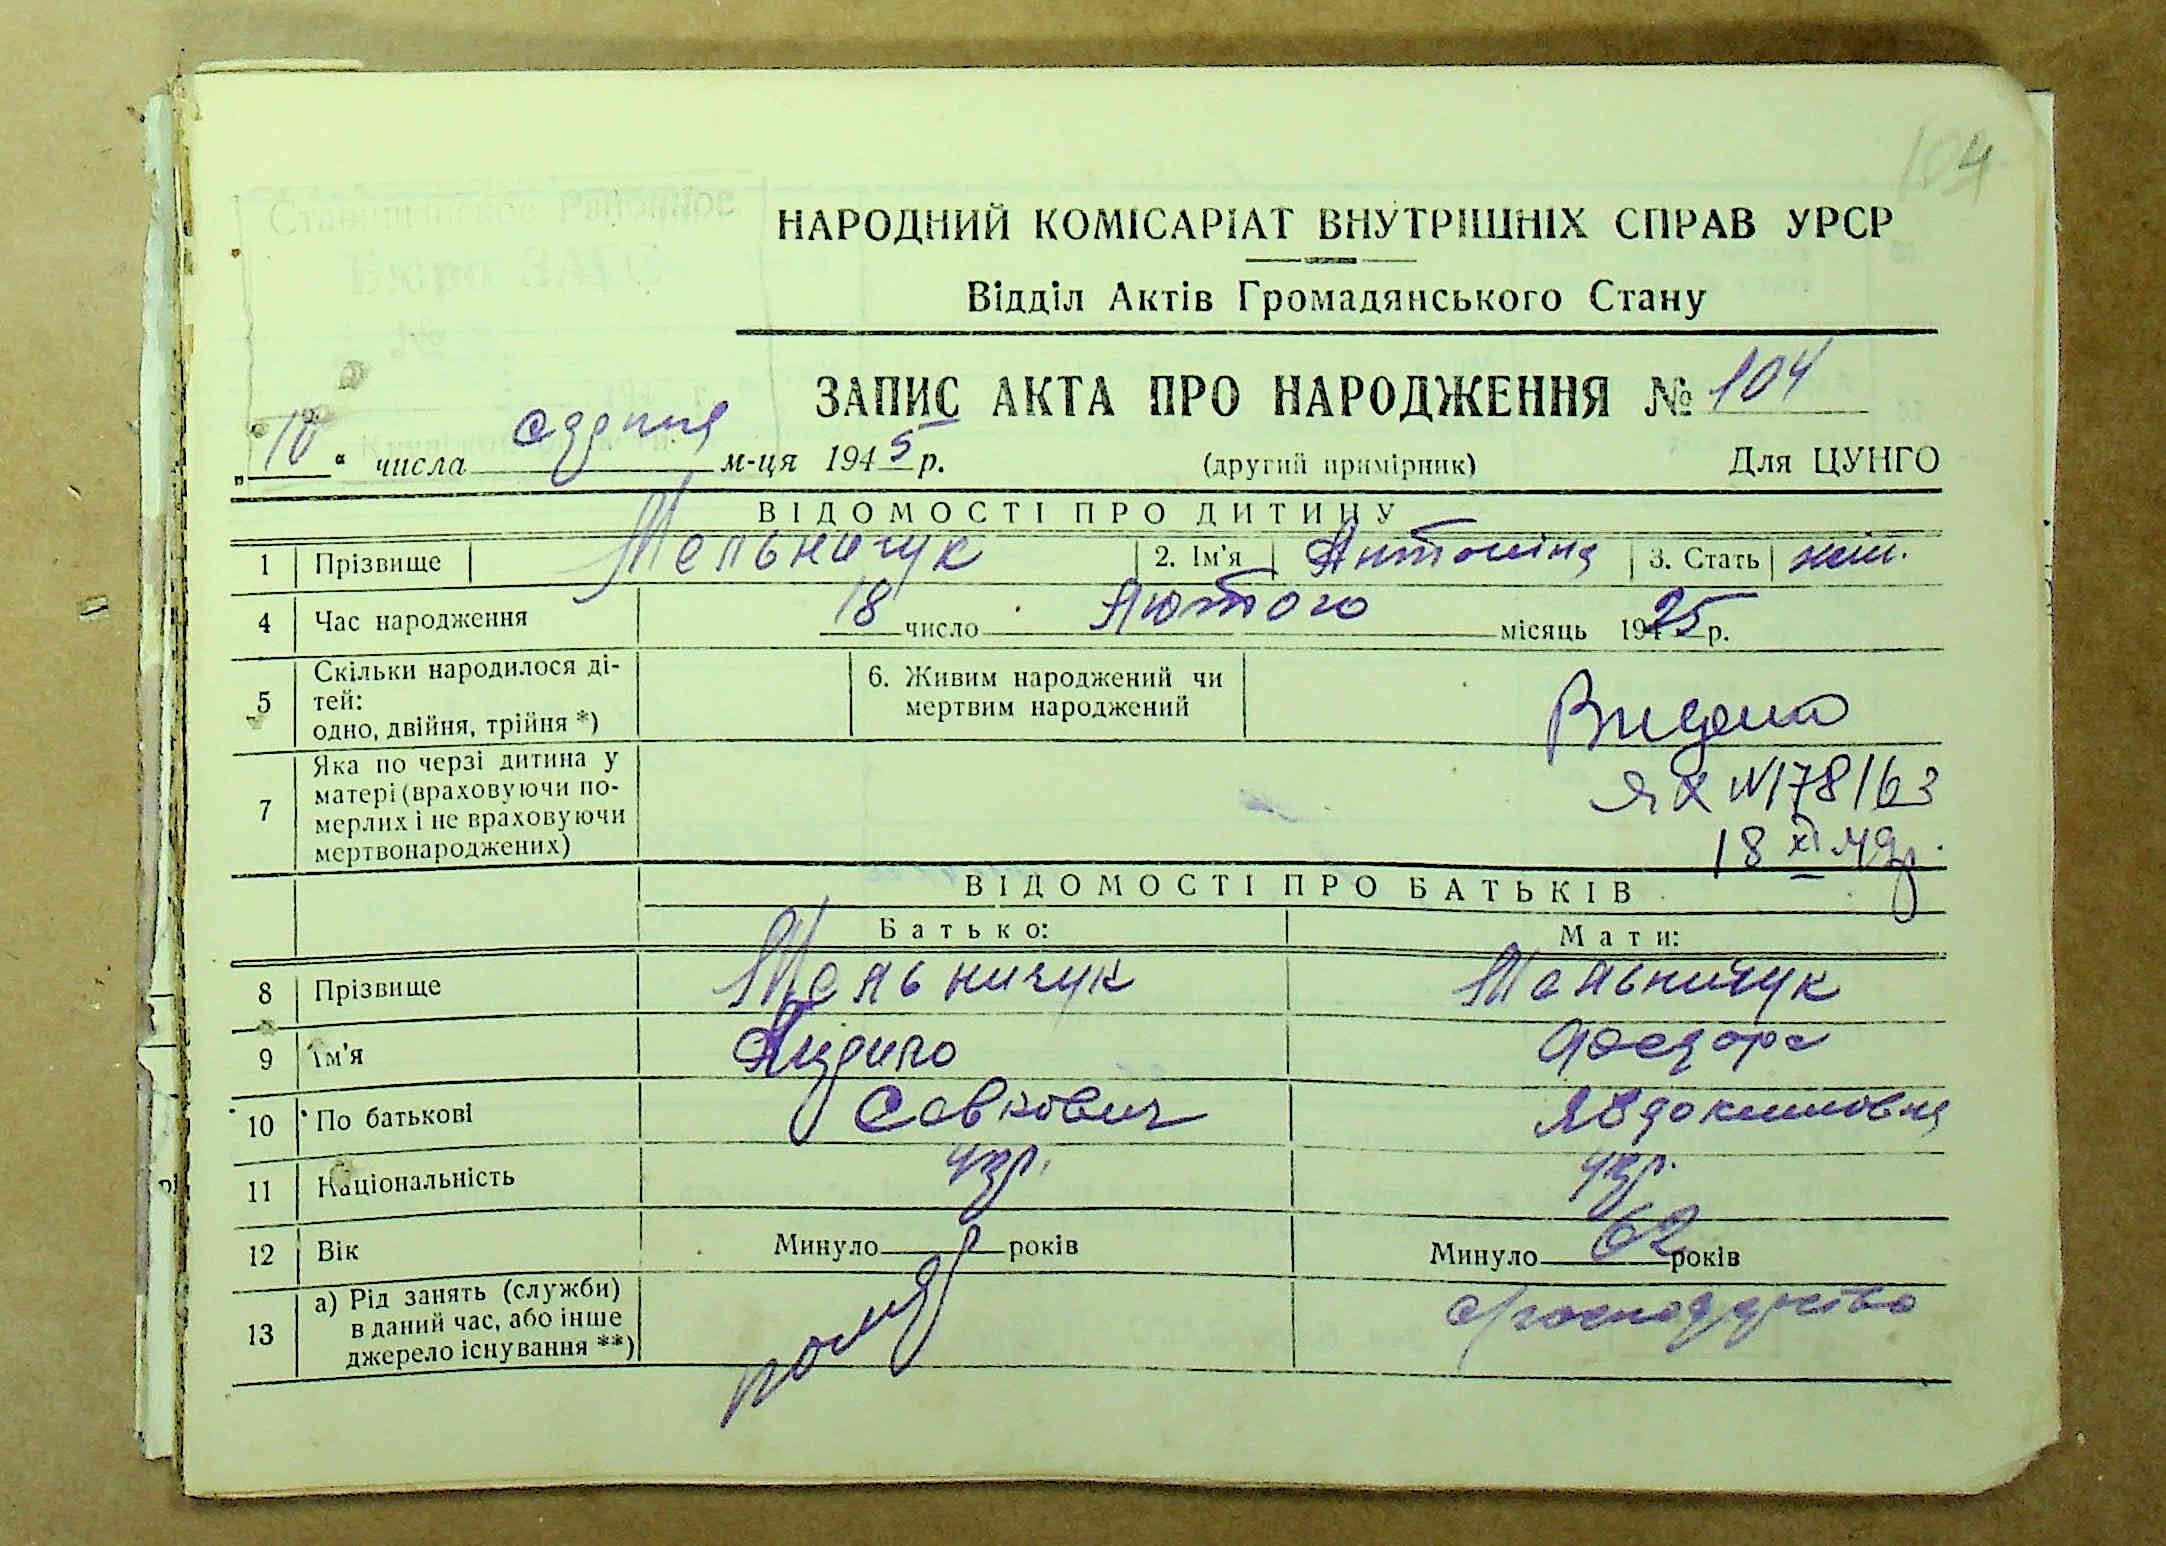 104
НАРОДНИЙ КОМІСАРІАТ ВНУТРІШНІХ СПРАВ УРСР
Відділ Актів Громадянського Стану
ЗАПИС АКТА ПРО НАРОДЖЕННЯ № 104
„10“ числа м-ця 1945 р. (другий примірник) Для ЦУНГО
ВІДОМОСТІ ПРО ДИТИНУ
1 Прізвище Мельничук 2. Ім'я Антоніна 3. Стать жін.
4 Час народження 18 число Лютого місяць 1925 р.
5 Скільки народилося ді-
тей:
одно, двійня, трійня *)
6. Живим народжений чи
мертвим народжений
Видано
7 Яка по черзі дитина у
матері (враховуючи по-
мерлих і не враховуючи
мертвонароджених)
N178163
18 XI 49р.
ВІДОМОСТІ ПРО БАТЬКІВ
Батько: Мати:
8 Прізвище Мельничук Мельничук
9 Ім'я Федора
10 По батькові Савкович Явдокимовна
11 Національність укр. укр.
12 Вік Минуло років Минуло 62 років
13 а) Рід занять (служби)
в даний час, або інше
джерело існування **)
помер
господарство